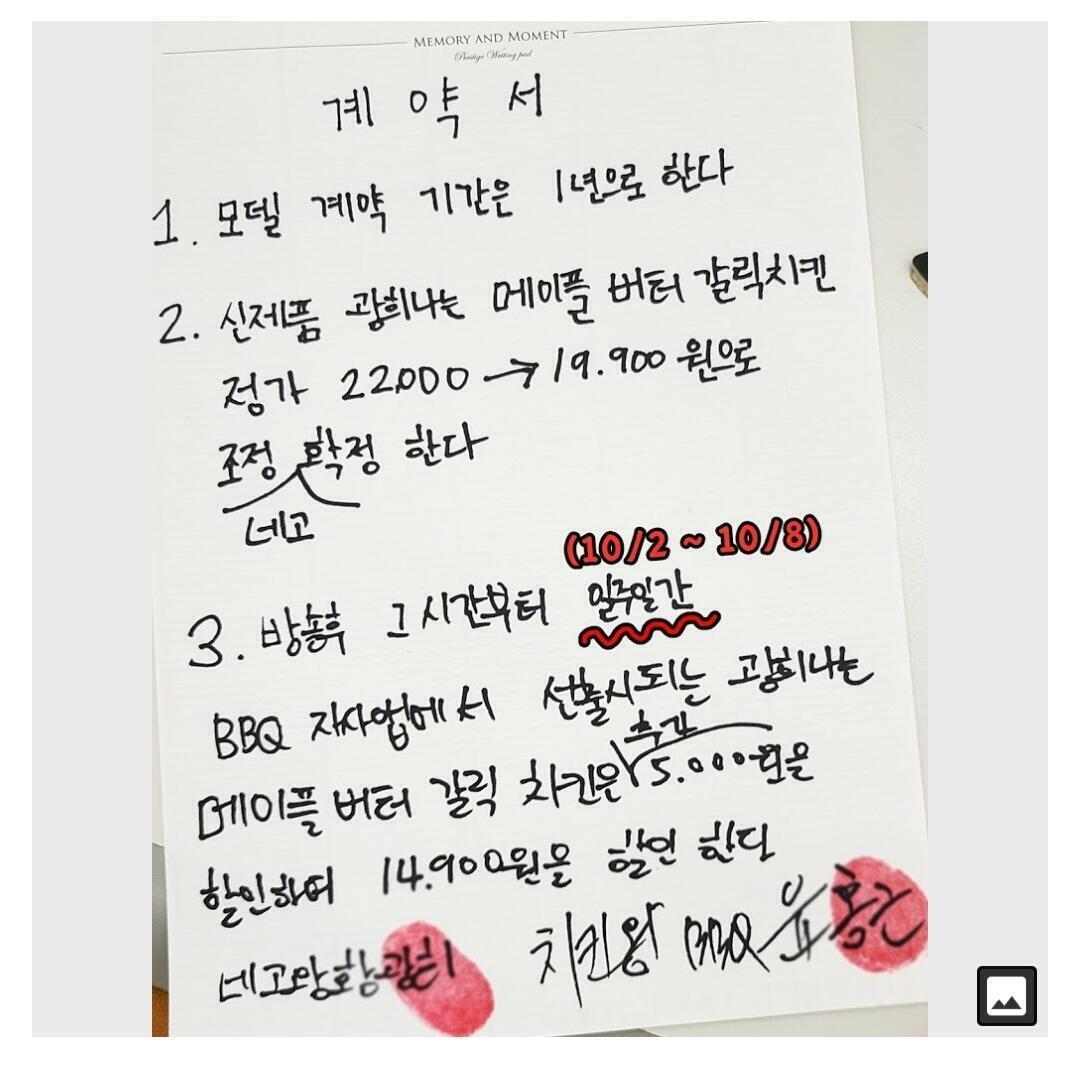 MEMORY AND MOMENT
Prestige Writing pad
계 약 서
1. 모델 계약 기간은 1년으로 한다
2. 신제품 광희나는 메이플 버터 갈릭치킨
정가 22,000 → 19.900 원으로
조정 확정 한다
네고
(10/2 ~ 10/8)
3. 방송후 그 시간부터 일주일간
BBQ 자사앱에서 선출시되는 광희나는
추가
메이플 버터 갈릭 치킨은 5.000원을
할인하여 14.900원을 할인 한다
네고왕 황광희 치킨왕 BBQ 윤홍근